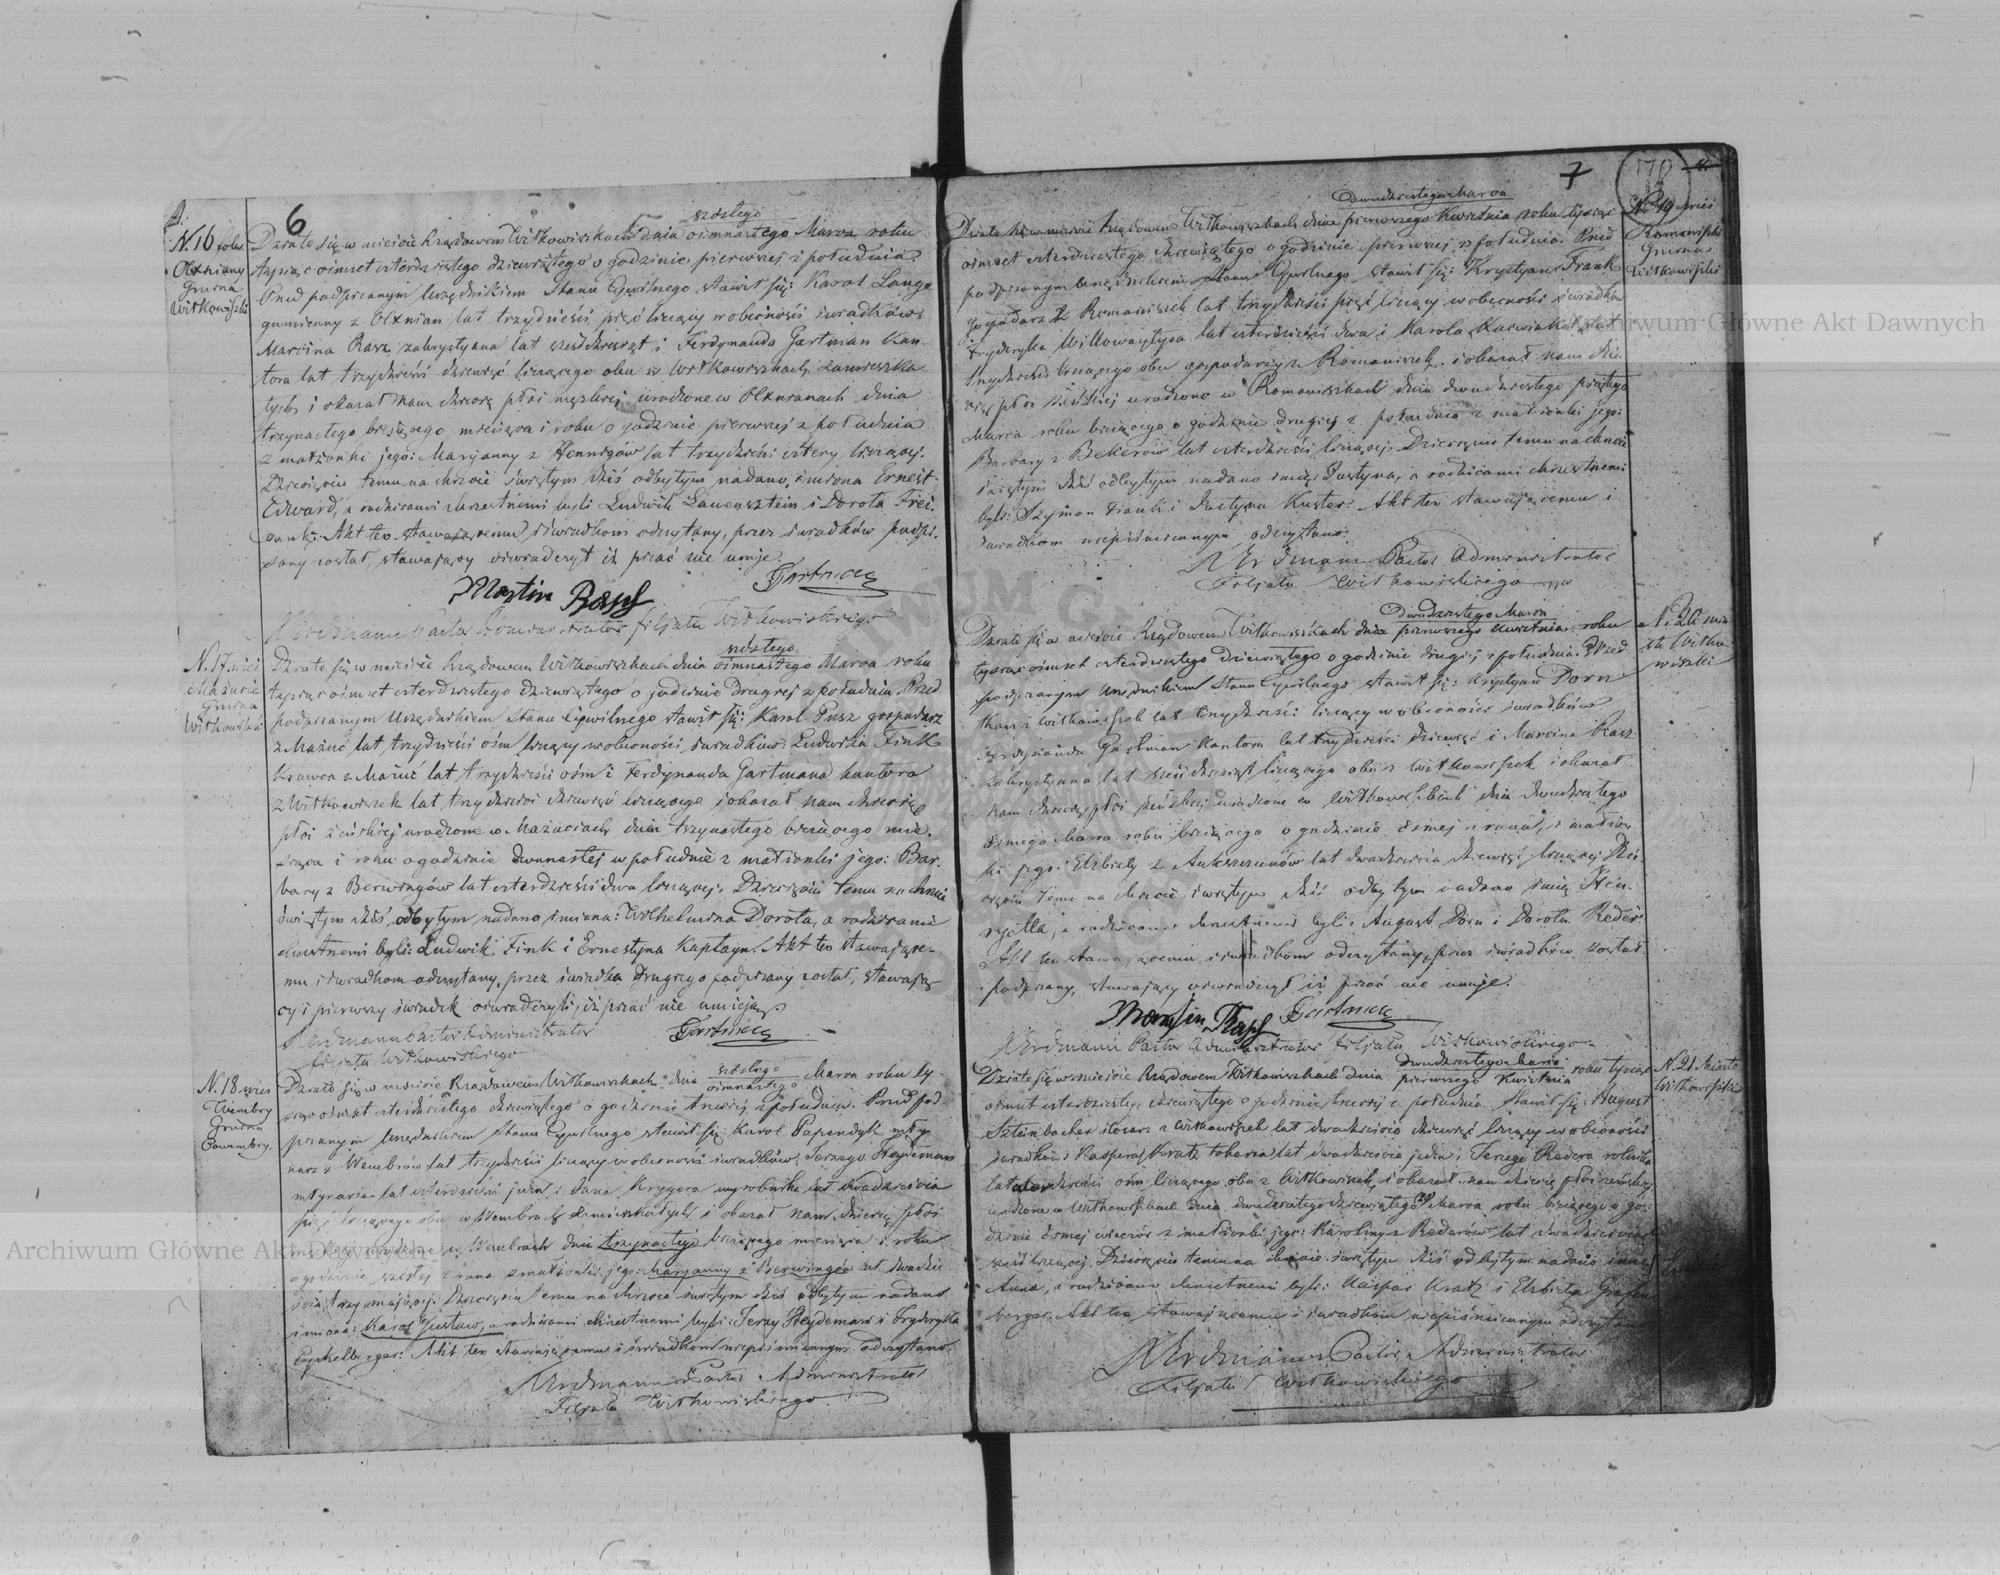 6
N. 16 folw.
Olxniany
Gmina
Witkowiszki
szóstego
Działo się w mieście Rządowem Witkowiszkach dnia ośmnastego Marca roku
tysiąc ośmset czterdziestego dziewiątego o godzinie pierwszej z południa
Przed podpisanym Urzędnikiem Stanu Cywilnego stawił się: Karol Lange
gumienny z Olxnian lat trzydzieści pięć liczący w obecności świadków
Marcina Rasz zakrystyana lat sześćdziesiąt i Ferdynanda Gartman Kan-
tora lat trzydzieści dziewięć liczącego obu w Witkowiszkach zamieszka
łych i okazał nam dziecię płci męzkiej urodzone w Olxnianach dnia
trzynastego bieżącego miesiąca i roku o godzinie pierwszej z południa
z małżonki jego: Maryanny z Hennigów lat trzydzieści cztery liczącej.
Dziecięciu temu na chrzcie świętym dziś odbytym nadano imiona Ernest
Edward, a rodzicami chrzestnemi byli Ludwik Lawensztein i Dorota Frei-
Akt ten stawającemu i świadkom odczytany, przez świadków podpi-
sany został, stawający oświadczył iż pisać nie umie.
Martin Rasch Gartman
N Erdmann Pastor Administrator filjału Witkowiskiego
N. 17. wieś
Mażucie
Gmina
Witkowiszki
szóstego
Działo się w mieście Rządowem Witkowiszkach dnia ośmnastego Marca roku
tysiąc ośmset czterdziestego dziewiątego o godzinie drugiej z południa Przed
podpisanym Urzędnikiem Stanu Cywilnego stawił się: Karol Pusz gospodarz
z Mażuć lat trzydzieści ośm liczący w obecności świadków: Ludwika Fink
Krawca z Mażuć lat trzydzieści ośm i Ferdynanda Gartmana kantora
z Witkowiszek lat trzydzieści dziewięć liczącego i okazał nam dziecię
płci żeńskiej urodzone w Mażuciach dnia trzynastego bieżącego mie-
siąca i roku o godzinie dwunastej w południe z małżonki jego: Bar-
bary z Berwingów lat czterdzieści dwa liczącej. Dziecięciu temu na chrzcie
świętym dziś odbytym nadano imiona: Wilhelmina Dorota, a rodzicami
chrzestnemi byli: Ludwik Fink i Ernestyna Kapłayn. Akt ten stawające-
mu i świadkom odczytany, przez świadka drugiego podpisany został, stawają-
cy i pierwszy świadek oświadczyli, iż pisać nie umieją.
N Erdmann Pastor Administrator Gartman
filjału Witkowiskiego
N. 18. wieś
Wembry
Gmina
szóstego
Działo się w mieście Rządowem Witkowiszkach dnia ośmnastego Marca roku ty-
siąc ośmset czterdziestego dziewiątego o godzinie trzeciej z południa. Przed pod-
pisanym Urzędnikiem Stanu Cywilnego stawił się Karol Papendyk młyn
narz z Wembrów lat trzydzieści liczący w obecności świadków: Jerzego Heydeman
młynarza lat czterdzieści jeden i Jana Krygera wyrobnika lat dwadzieścia
pięć liczącego obu w Wembrach zamieszkałych i okazał nam dziecię płci
męzkiej urodzone w Wembrach dnia trzynastego bieżącego miesiąca i roku
o godzinie szóstej z rana z małżonki jego: Maryanny z Berwingów lat dwadzie-
ścia trzy mającej. Dziecięciu temu na chrzcie świętym dziś odbytym nadano
imiona: Karol Gustaw, a rodzicami chrzestnemi byli: Jerzy Heydeman i Fryderyka
Engelberger: Akt ten stawającemu i świadkom niepiśmiennym odczytano.
N Erdmann Pastor Administrator
Filjału Witkowiskiego
7
170
N. 19 wieś
Romaniszki
Gmina
Witkowiszki
Dwudziestego Marca
Działo się w mieście Rządowem Witkowiszkach dnia pierwszego Kwietnia roku tysiąc
ośmset czterdziestego dziewiątego o godzinie pierwszej z południa. Przed
podpisanym Urzędnikiem Stanu Cywilnego stawił się: Krystyan Frank
gospodarz z Romaniszek lat trzydzieści pięć liczący w obecności świadków
Fryderyka Willowaytysa lat czterdzieści dwa i Karola lat
trzydzieści liczącego obu gospodarzy z Romaniszek i okazał nam dzie-
cię płci żeńskiej urodzone w Romaniszkach dnia dwudziestego piątego
Marca roku bieżącego o godzinie drugiej z południa z małżonki jego:
Barbary z Bekerów lat czterdzieści liczącej. Dziecięciu temu na chrzcie
świętym dziś odbytym nadano imię Justyna, a rodzicami chrzestnemi
byli: Szymon Frank i Justyna Kuster. Akt ten stawającemu i
świadkom niepiśmiennym odczytano.
N Erdmann Pastor Administrator
Filjału Witkowiskiego
N. 20 mia
sto Witko
wiszki
Dwudziestego Marca
Działo się w mieście Rządowem Witkowiszkach dnia pierwszego Kwietnia roku
tysiąc ośmset czterdziestego dziewiątego o godzinie drugiej z południa. Przed
podpisanym Urzędnikiem Stanu Cywilnego stawił się: Krystyan Dorn
tkacz z Witkowiszek lat trzydzieści liczący w obecności świadków
Ferdynanda Gartman Kantora lat trzydzieści dziewięć i Marcina Rasz
Zakrystyana lat sześćdziesiąt liczącego obu z Witkowiszek i okazał
nam dziecię płci żeńskiej urodzone w Witkowiszkach dnia dwudziestego
ósmego Marca roku bieżącego o godzinie ósmej z rana, z małżon-
ki jego: Elżbiety z lat dwadzieścia dziewięć liczącej Dzie-
cięciu temu na chrzcie świętym dziś odbytym nadano imię Hen-
ryetta, a rodzicami chrzestnemi byli: August Dorn i Dorota Reder
Akt ten stawającemu i świadkom odczytany, przez świadków został
podpisany, stawający oświadczył iż pisać nie umie.
Martin Rasch Gartman
N Erdmann Pastor Administrator filjału Witkowiskiego
N. 21. Miasto
Witkowiszki
dwudziestego Marca
Działo się w mieście Rządowem Witkowiszkach dnia pierwszego Kwietnia roku tysiąc
ośmset czterdziestego dziewiątego o godzinie trzeciej z południa. Stawił się: August
Szteinbacher ślosarz z Witkowiszek lat dwadzieścia dziewięć liczący w obecności
świadków: Kaspera Kratz lat dwadzieścia jeden i Jerzego Redera rolnika
lat ośm liczącego obu z Witkowiszek, i okazał nam dziecię płci żeńskiej
urodzone w Witkowiszkach dnia dwudziestego dziewiątego (29) Marca roku bieżącego o go-
dzinie ósmej wieczór z małżonki jego: Karoliny z Rederów lat dwadzieścia
sześć liczącej. Dziecięciu temu na chrzcie świętym dziś odbytym nadano imię
Anna, a rodzicami chrzestnemi byli: Kasper Kratz i Elżbieta Grafen
berger. Akt ten stawającemu i świadkom niepiśmiennym odczytano
N Erdmann Pastor Administrator
Filjału Witkowiskiego
Archiwum Główne Akt Dawnych
Archiwum Główne Akt Dawnych